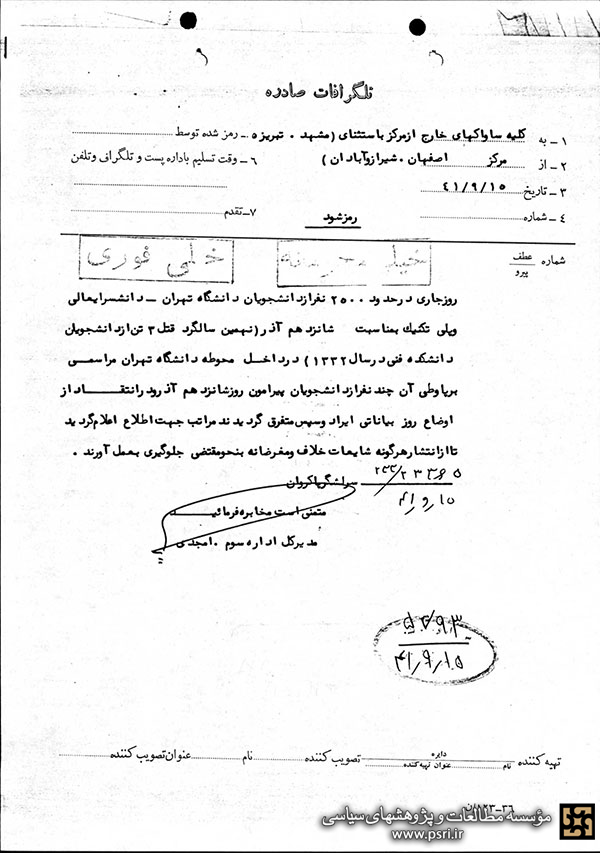 تلگرافات صادره
۱ – به کلیه ساواکهای خارج از مرکز باستثنای (مشهد . تبریزه رمز شده توسط
۲ – از مرکز اصفهان . شیراز و آبادان ) ۶ – وقت تسلیم باداره پست و تلگرافی و تلفن
۳ – تاریخ ۴۱/۹/۱۵
۴ – شماره رمز شود ۷ – تقدم
شماره عطف پیرو
خیلی محرمانه
خیلی فوری
روز جاری در حدود ۲۵۰۰ نفر از دانشجویان دانشگاه تهران – دانشسرایعالی
وپلی تکنیک بمناسبت شانزدهم آذر (نهمین سالگرد قتل ۳ تن از دانشجویان
دانشکده فنی در سال ۱۳۳۲) در داخل محوطه دانشگاه تهران مراسمی
برپا وطی آن چند نفر از دانشجویان پیرامون روز شانزدهم آذر ودر انتقاد از
اوضاع روز بیاناتی ایراد و سپس متفرق گردیدند مراتب جهت اطلاع اعلام گردید
تا از انتشار هرگونه شایعات خلاف ومغرضانه بنحو مقتضی جلوگیری بعمل آورند .
سرلشگر پاکروان
متمنی است مخابره فرمائید
مدیرکل اداره سوم . امجدی
۴۱/۹/۱۵
تهیه کننده نام دایره عنوان تهیه کننده تصویب کننده نام عنوان تصویب کننده
مؤسسه مطالعات و پژوهشهای سیاسی
www.psri.ir